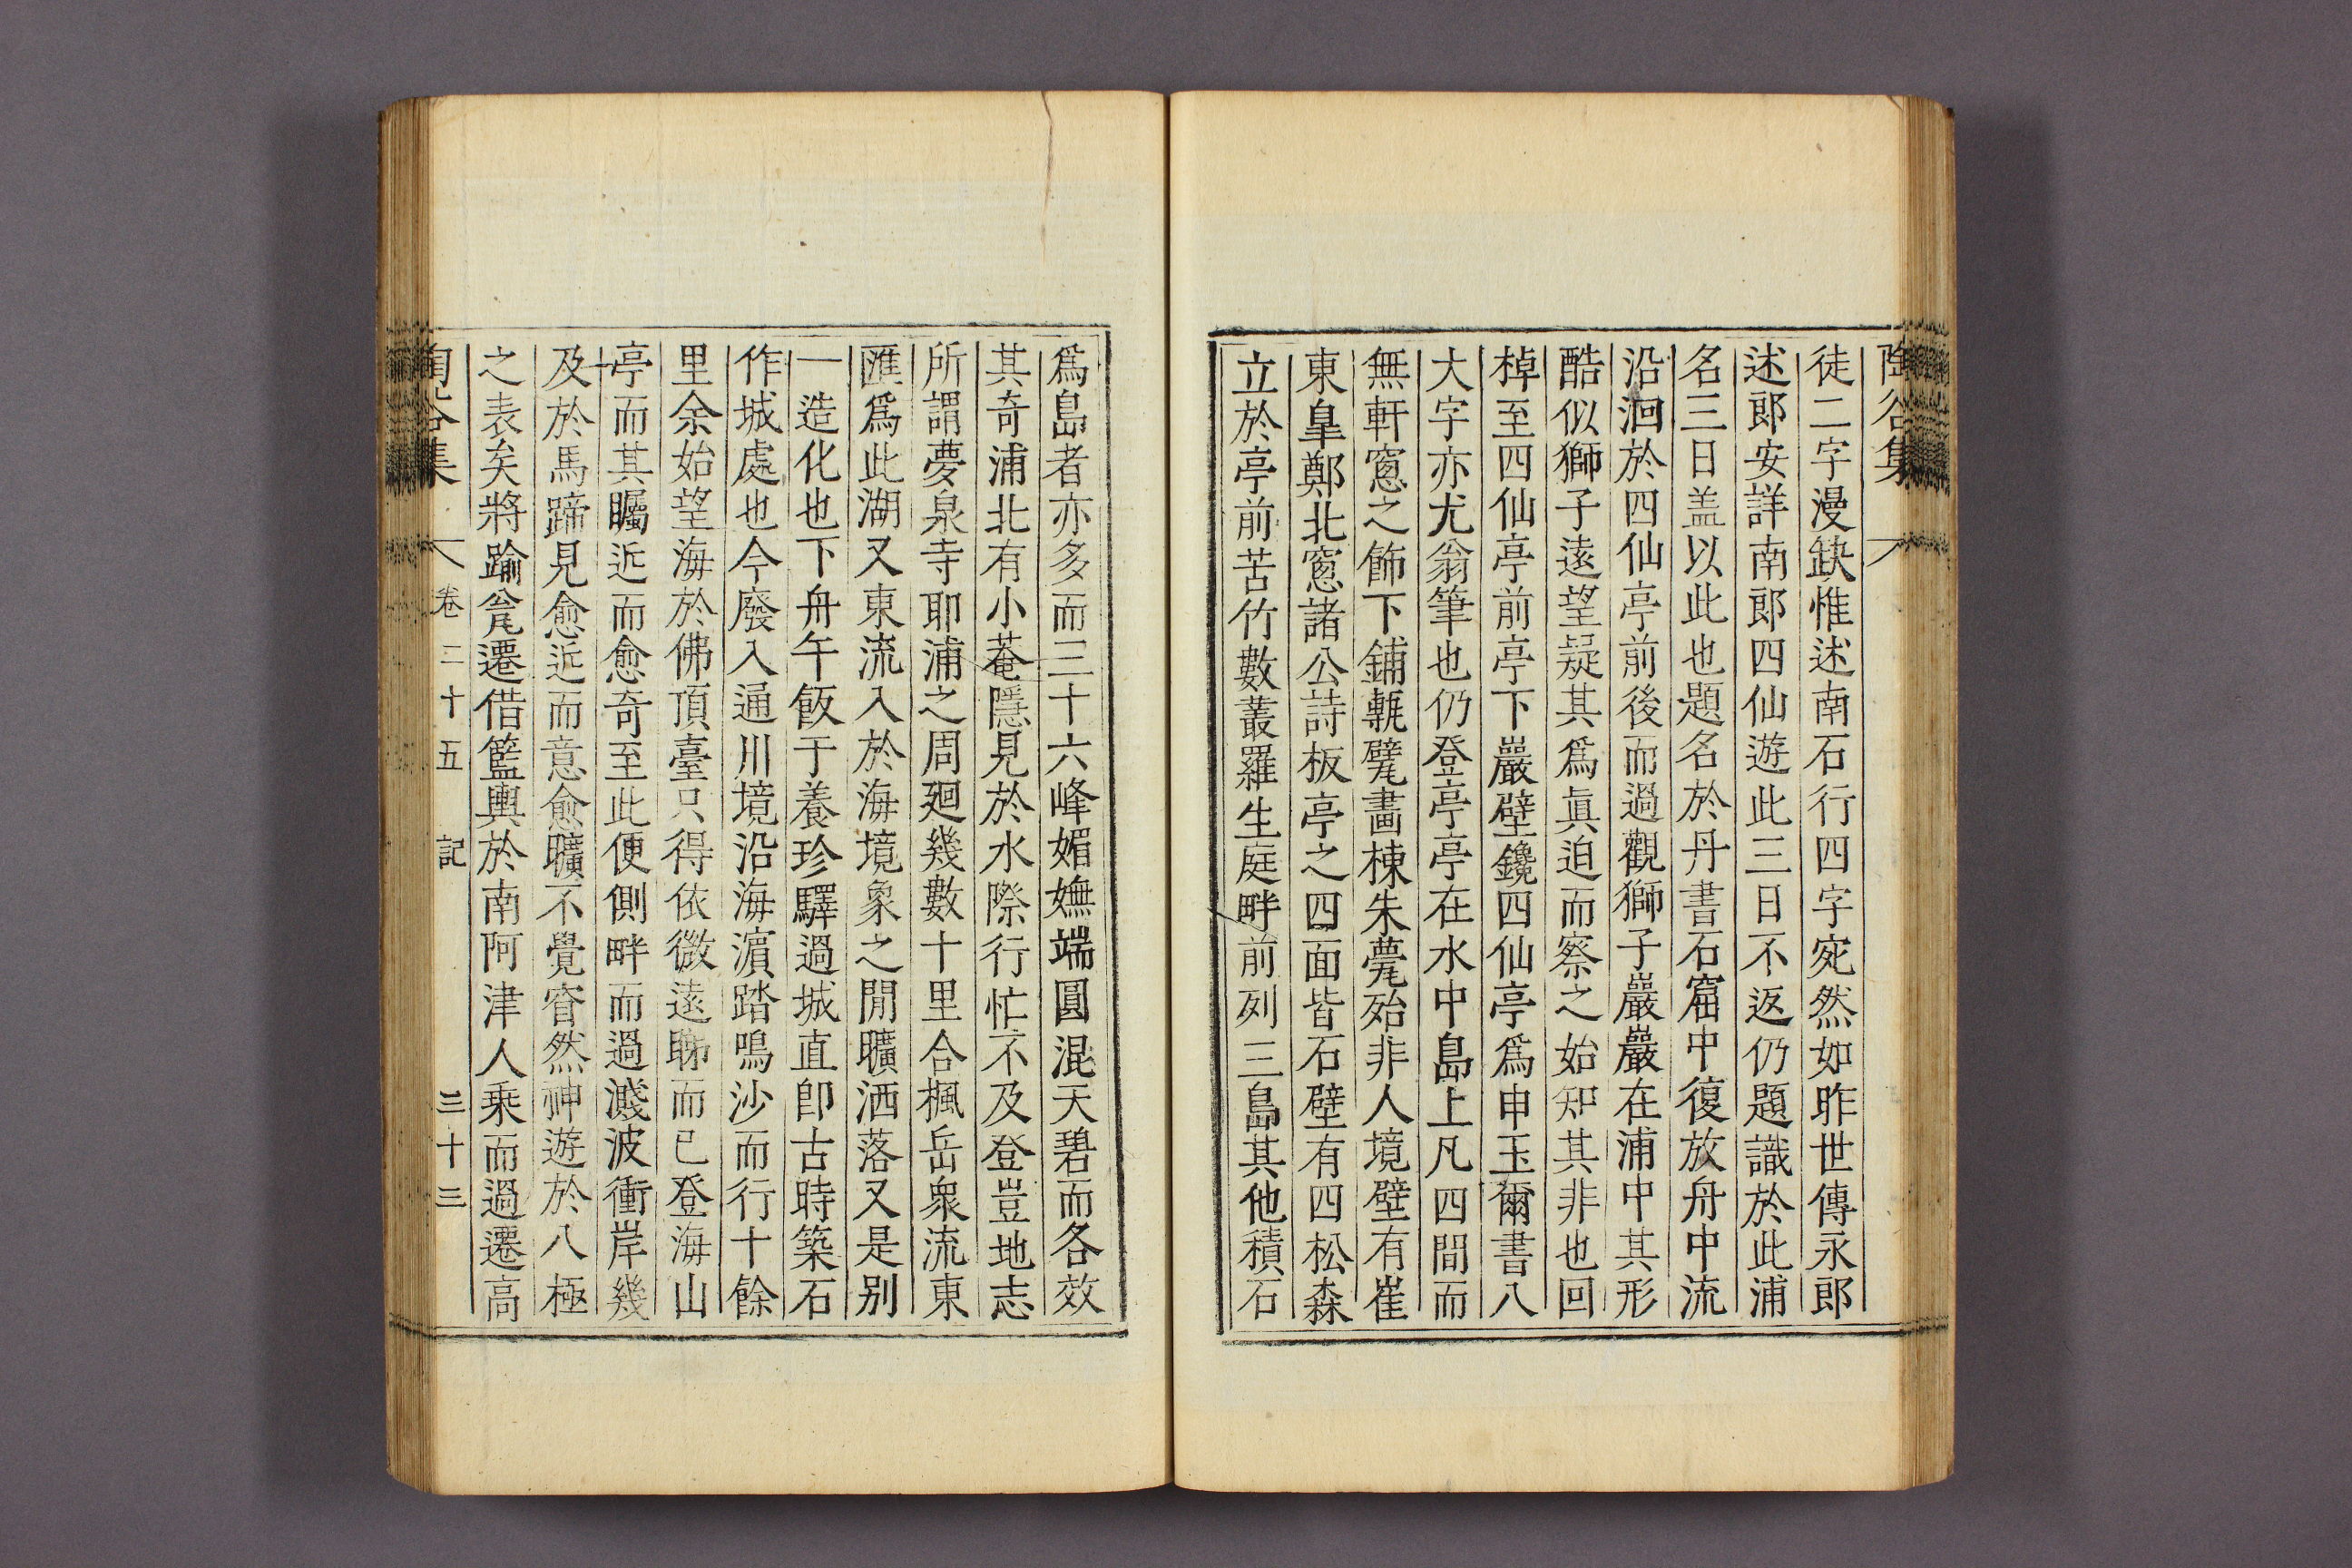 陶谷集
徒二字漫缺惟述南石行四字宛然如昨世傳永郎
述郎安詳南郎四仙遊此三日不返仍題識於此浦
名三日盖以此也題名於丹書石窟中復放舟中流
沿洄於四仙亭前後而過觀獅子巖巖在浦中其形
酷似獅子遠望疑其爲眞迫而察之始知其非也回
棹至四仙亭前亭下巖壁鑱四仙亭爲申玉爾書八
大字亦尤翁筆也仍登亭亭在水中島上凡四間而
無軒窓之飾下鋪甎甓畵棟朱甍殆非人境壁有崔
東臯鄭北窓諸公詩板亭之四面皆石壁有四松森
立於亭前苦竹數叢羅生庭畔前列三島其他積石
爲島者亦多而三十六峰媚嫵端圓混天碧而各效
其奇浦北有小菴隱見於水際行忙不及登豈地志
所謂夢泉寺耶浦之周廻幾數十里合楓岳衆流東
匯爲此湖又東流入於海境象之閒曠洒落又是别
一造化也下舟午飯于養珍驛過城直卽古時築石
作城處也今廢入通川境沿海濵踏鳴沙而行十餘
里余始望海於佛頂臺只得依微遠睇而已登海山
亭而其矚近而愈奇至此便側畔而過濺波衝岸幾
及於馬蹄見愈近而意愈曠不覺窅然神遊於八極
之表矣將踰瓮遷借籃輿於南阿津人乘而過遷高
陶谷集 卷二十五 記 三十三